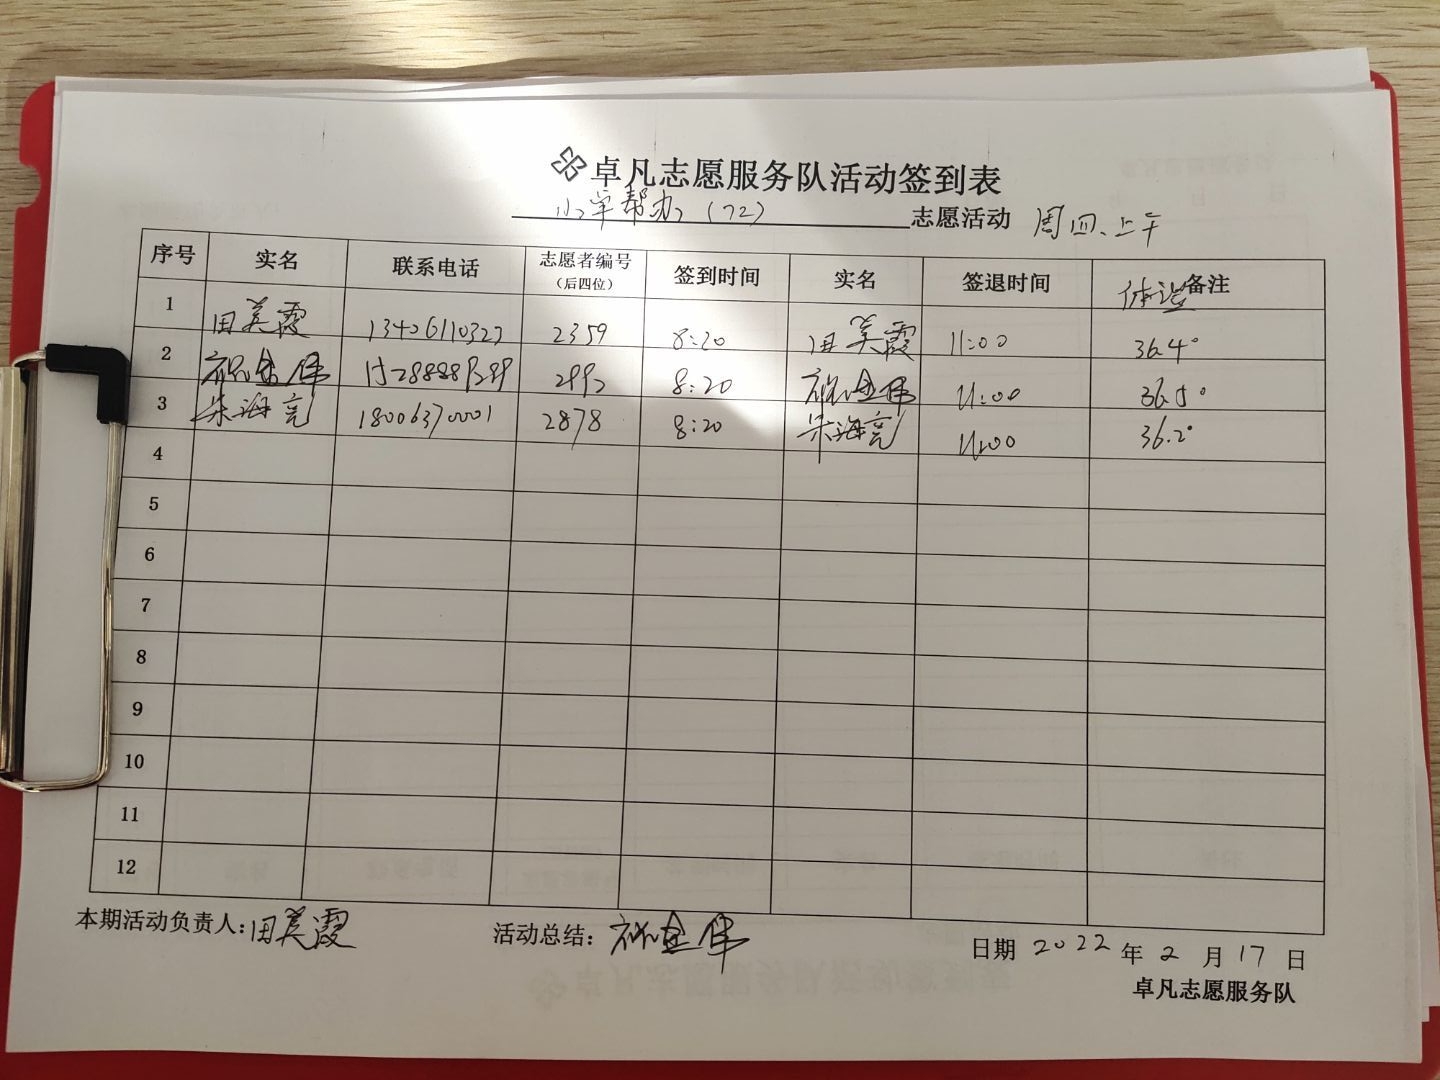 卓凡志愿服务队活动签到表
小辛帮办（72） 志愿活动 周四、上午
序号 实名 联系电话 志愿者编号（后四位） 签到时间 实名 签退时间 体温 备注
1 田美霞 13406110327 2359 8:20 田美霞 11:00 36.4°
2 8:20 11:00 36.5°
3 朱海亮 18006370001 2878 8:20 朱海亮 11:00 36.2°
4
5
6
7
8
9
10
11
12
本期活动负责人：田美霞 活动总结： 日期 2022 年 2 月 17 日
卓凡志愿服务队